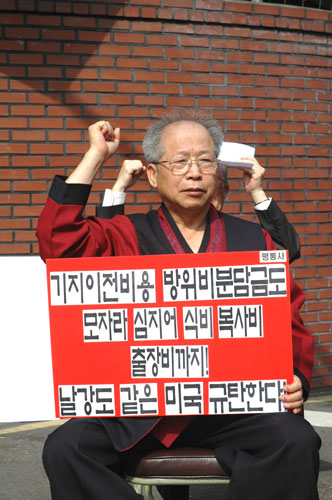 평통사
기지이전비용 방위비분담금도
모자라 심지어 식비 복사비
출장비까지!
날강도 같은 미국 규탄한다